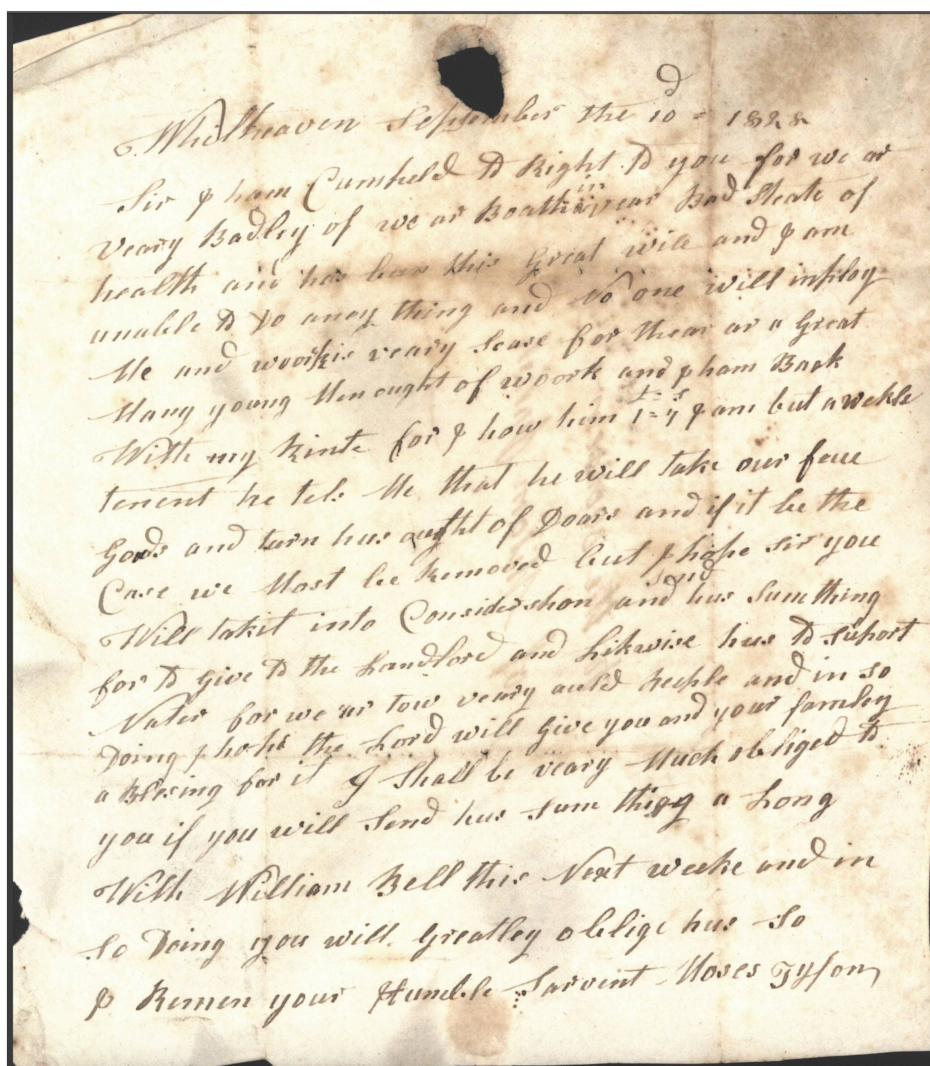 Whithaven September the 10d = 1828
Sir I ham Cumpeld to Right to you for we ar
veary Badley of we ar Boath in vear Bad Steate of
health and has bean this Great wile and I am
unable to Do aney thing and No one will imploy
Me and woork is veary Scase for thear ar a Great
Many young Men ought of woork and I ham Back
With my Rinte for I how him 1=7s I am but a wekle
tenent he tels Me that he will take our feue
Goods and turn hus ought of Doars and if it be the
Case we Most be Removed but I hope sir you
Will takit into Considershon and Send hus Sumthing
for to Give to the Landlord and Likwise hus to suport
Nater for we ar tow veary auld peeple and in so
Doing I hope the Lord will Give you and your famley
a Blesing for it I Shall be veary Much obliged to
you if you will Send hus Sum thing a Long
With William Bell this Next weeke and in
So Doing you will Greatley oblige hus So
I Remen your Humble Sarvent Moses Tyson